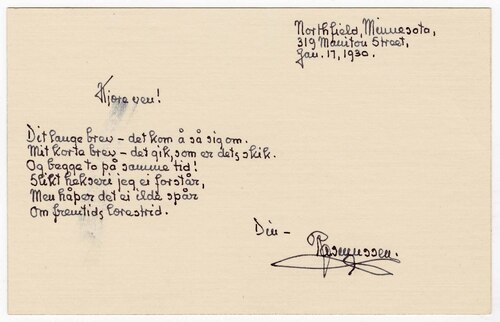 Northfield, Minnesota,
319 Manitou Street,
Jan. 17, 1930.
Kjære ven!
Dit lange brev – det kom å så sig om.
Mit korte brev – det gik, som er dets skik.
Og begge to på samme tid!
Slikt hekseri jeg ei forstår,
Men håper det ei ilde spår
Om fremtids lærestrid.
Din –
Rasmussen.